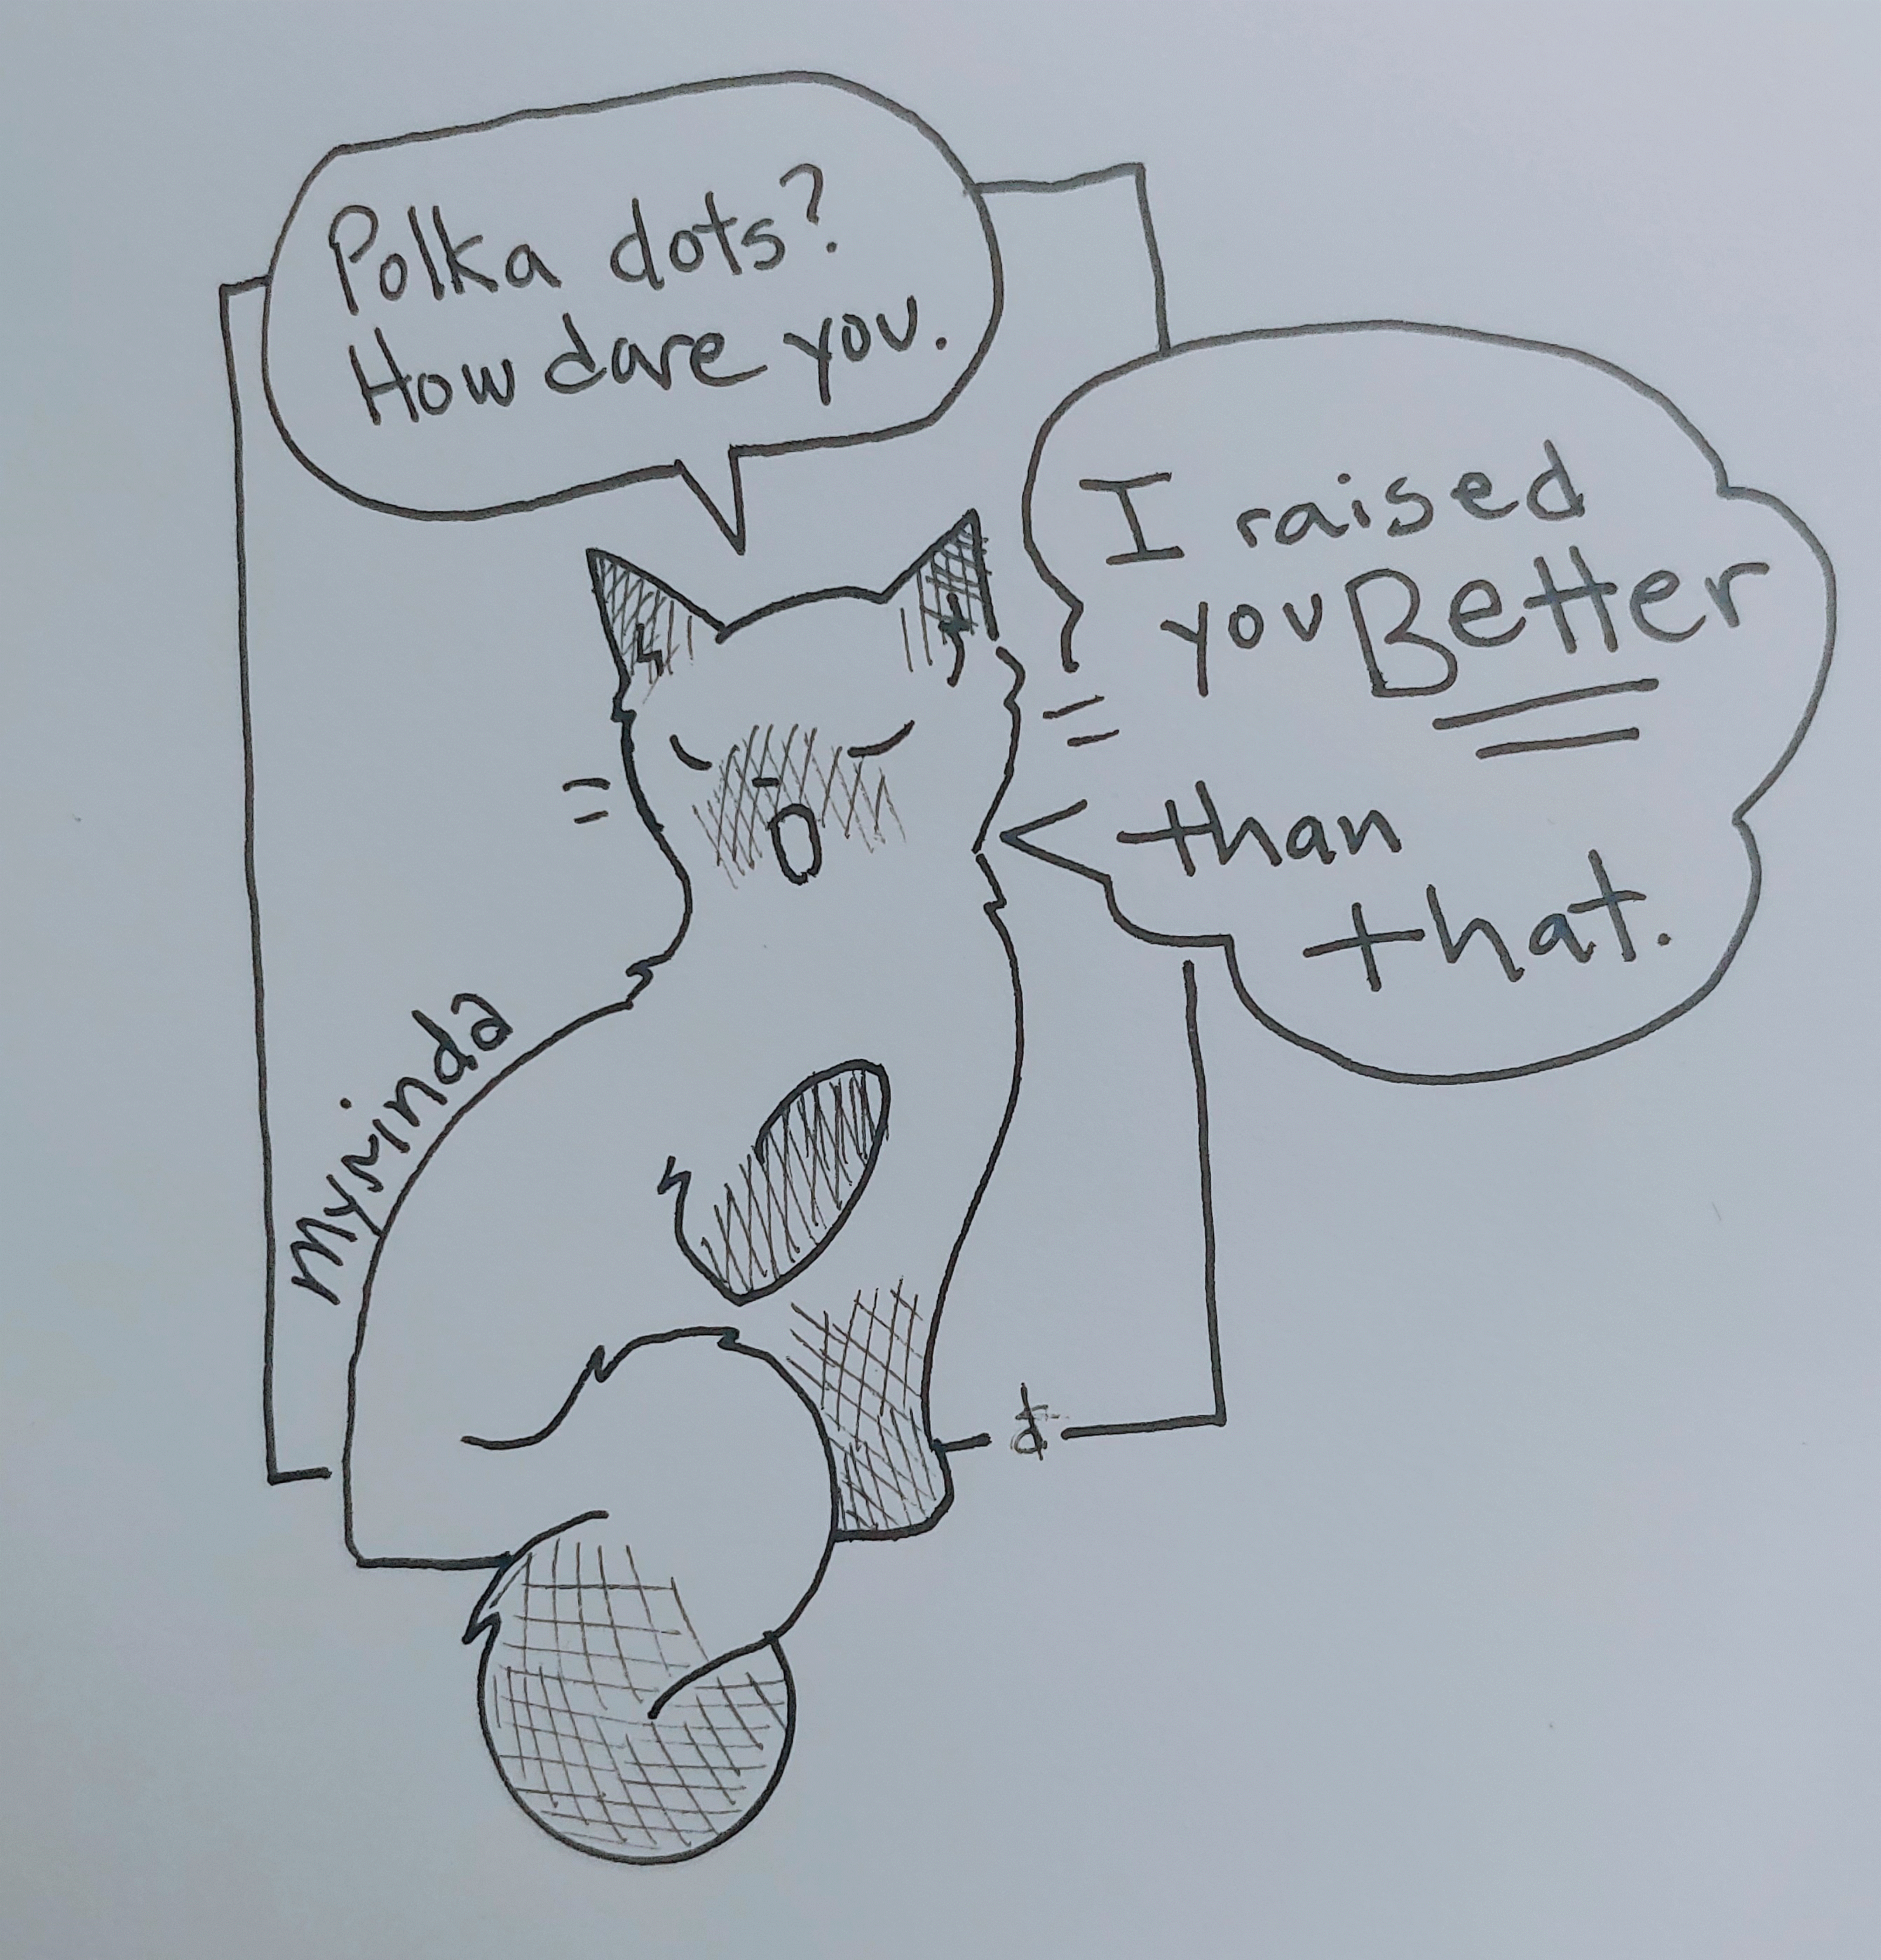 Polka dots?
How dare you.
I raised
you Better
than
that.
Myminda